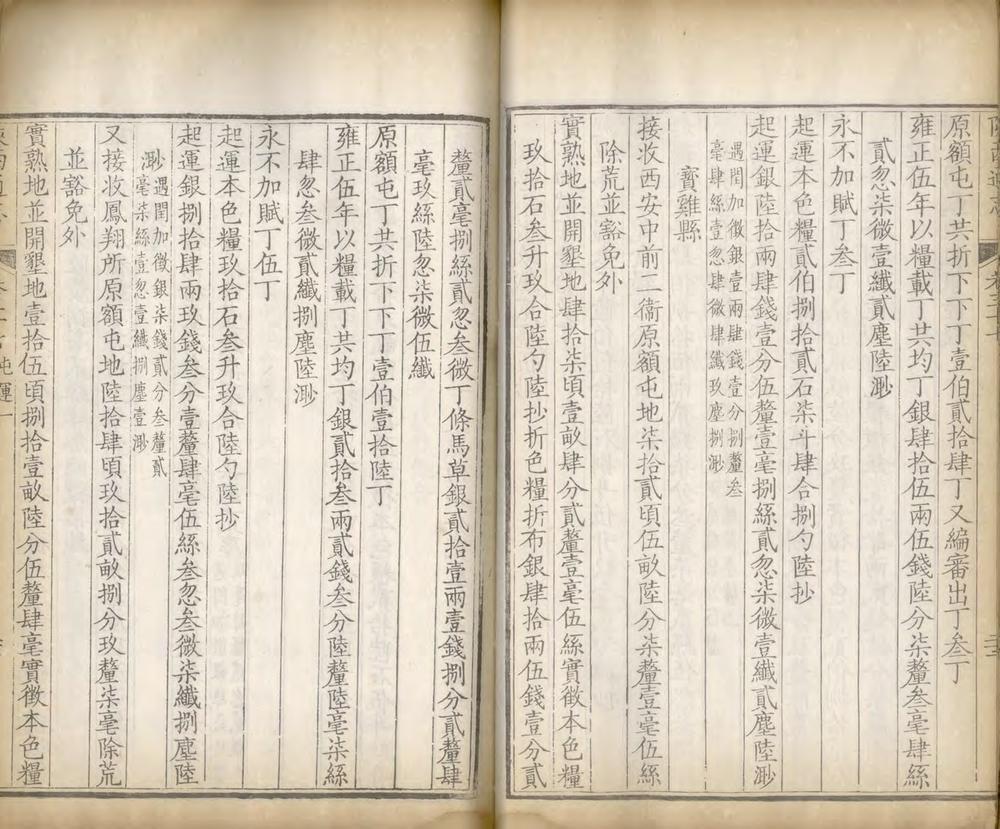 原額屯丁共折下下丁壹伯貳拾肆丁又編審出丁叁丁
雍正伍年以糧載丁共均丁銀肆拾伍兩伍錢陸分柒釐叁毫肆絲
貳忽柒微壹纖貳塵陸渺
永不加賦丁叁丁
起運本色糧貳伯捌拾貳石柒斗肆合捌勺陸抄
起運銀陸拾兩肆錢壹分伍釐壹毫捌絲貳忽柒微壹纖貳塵陸渺
遇閏加徵銀壹兩肆錢壹分捌釐叁
毫肆絲壹忽肆微肆纖玖塵捌渺
寳雞縣
接收西安中前二衛原額屯地柒拾貳頃伍畝陸分柒釐壹毫伍絲
除荒並豁免外
實熟地並開墾地肆拾柒頃壹畝肆分貳釐壹毫伍絲實徵本色糧
玖拾石叁升玖合陸勺陸抄折色糧折布銀肆拾兩伍錢壹分貳
釐貳毫捌絲貳忽叁微丁條馬草銀貳拾壹兩壹錢捌分貳釐肆
毫玖絲陸忽柒微伍纖
原額屯丁共折下下丁壹伯壹拾陸丁
雍正伍年以糧載丁共均丁銀貳拾叁兩貳錢叁分陸釐陸毫柒絲
肆忽叁微貳纖捌塵陸渺
永不加賦丁伍丁
起運本色糧玖拾石叁升玖合陸勺陸抄
起運銀捌拾肆兩玖錢叁分壹釐肆毫伍絲叁忽叁微柒纖捌塵陸
渺遇閏加徵銀柒錢貳分叁釐貳
毫柒絲壹忽壹纖捌塵壹渺
又接收鳳翔所原額屯地陸拾肆頃玖拾貳畝捌分玖釐柒毫除荒
並豁免外
實熟地並開墾地壹拾伍頃捌拾壹畝陸分伍釐肆毫實徵本色糧